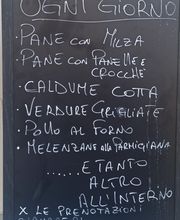 OGNI GIORNO
· PANE CON MILZA
· PANE CON PANELLE E
CROCCHÉ
· CALDUME COTTA
· VERDURE GRIGLIATE
· POLLO AL FORNO
· MELENZANE ALLA PARMIGIANA
......E TANTO
ALTRO
ALL'INTERNO
X LE PRENOTAZIONI